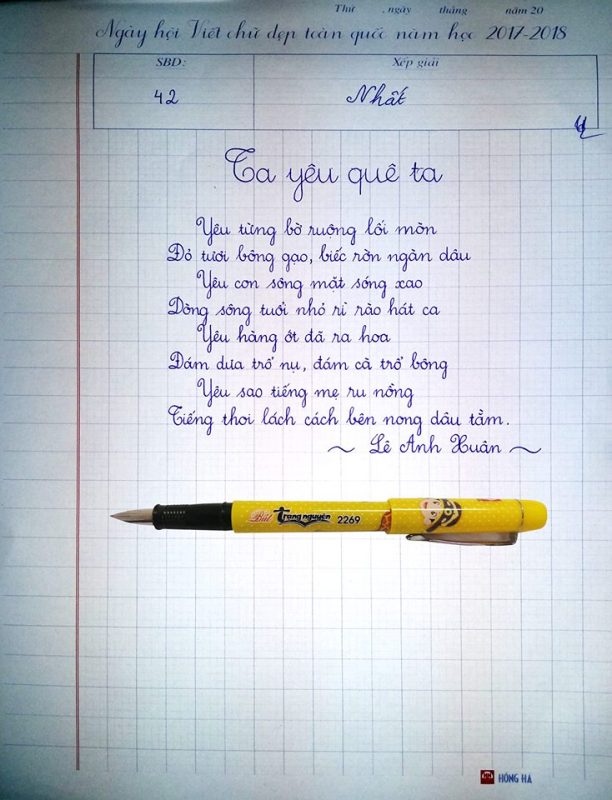 Thứ , ngày tháng năm 20
Ngày hội Viết chữ đẹp toàn quốc năm học 2017-2018
SBD: Xếp giải
42 Nhất
Ta yêu quê ta
Yêu từng bờ ruộng lối mòn
Đỏ tươi bông gạo, biếc rờn ngàn dâu
Yêu con sông mặt sóng xao
Dòng sông tuổi nhỏ rì rào hát ca
Yêu hàng ớt đã ra hoa
Đám dưa trổ nụ, đám cà trổ bông
Yêu sao tiếng mẹ ru nồng
Tiếng thoi lách cách bên nong dâu tằm.
~ Lê Anh Xuân ~
Bút Trạng nguyên 2269
HỒNG HÀ